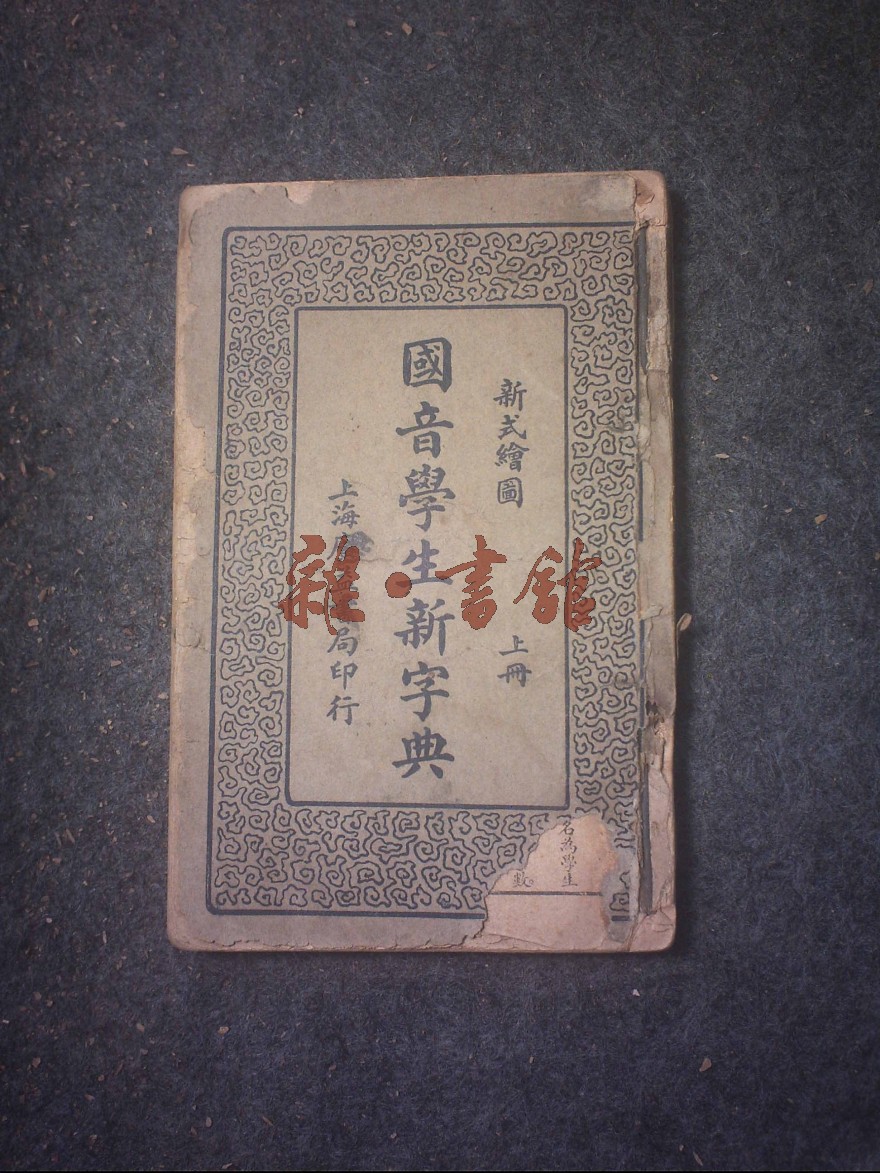 新式繪圖
上冊
國音學生新字典
上海
局印行
雜·書館
名為學生
數